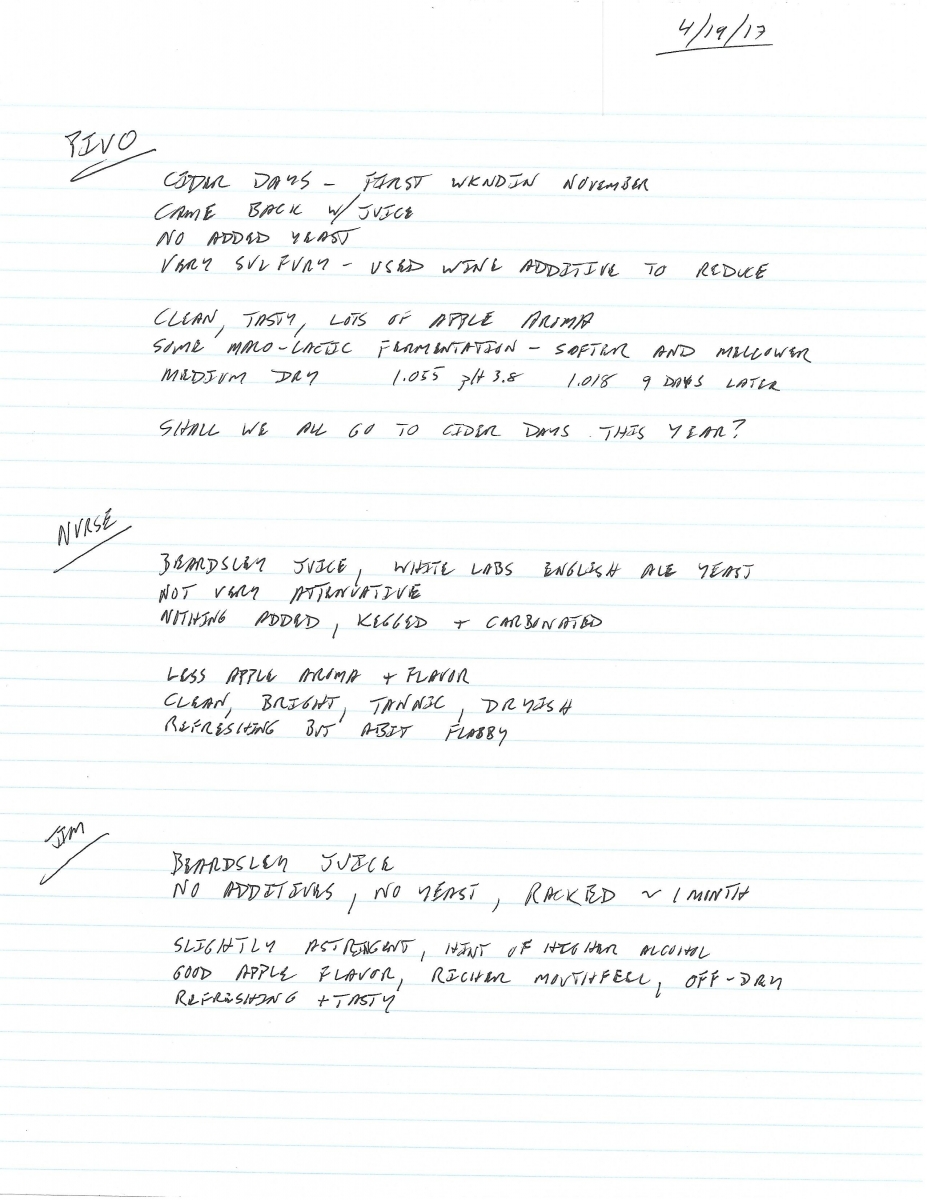 4/19/17
PIVO
CIDER DAYS - FIRST WKNDIN NOVEMBER
CAME BACK W/ JUICE
NO ADDED YEAST
VERY SULFURY - USED WINE ADDITIVE TO REDUCE
CLEAN, TASTY, LOTS OF APPLE AROMA
SOME MALO-LACTIC FERMENTATION - SOFTER AND MELLOWER
MEDIUM DRY 1.055 pH 3.8 1.018 9 DAYS LATER
SHALL WE ALL GO TO CIDER DAYS THIS YEAR?
NURSE
BEARDSLEY JUICE, WHITE LABS ENGLISH ALE YEAST
NOT VERY ATTENUATIVE
NOTHING ADDED, KEGGED + CARBONATED
LESS APPLE AROMA + FLAVOR
CLEAN, BRIGHT, TANNIC, DRYISH
REFRESHING BUT ABIT FLABBY
JIM
BEARDSLEY JUICE
NO ADDITIVES, NO YEAST, RACKED ~ 1 MONTH
SLIGHTLY ASTRINGENT, HINT OF HIGHER ALCOHOL
GOOD APPLE FLAVOR, RICHER MOUTHFEEL, OFF-DRY
REFRESHING + TASTY